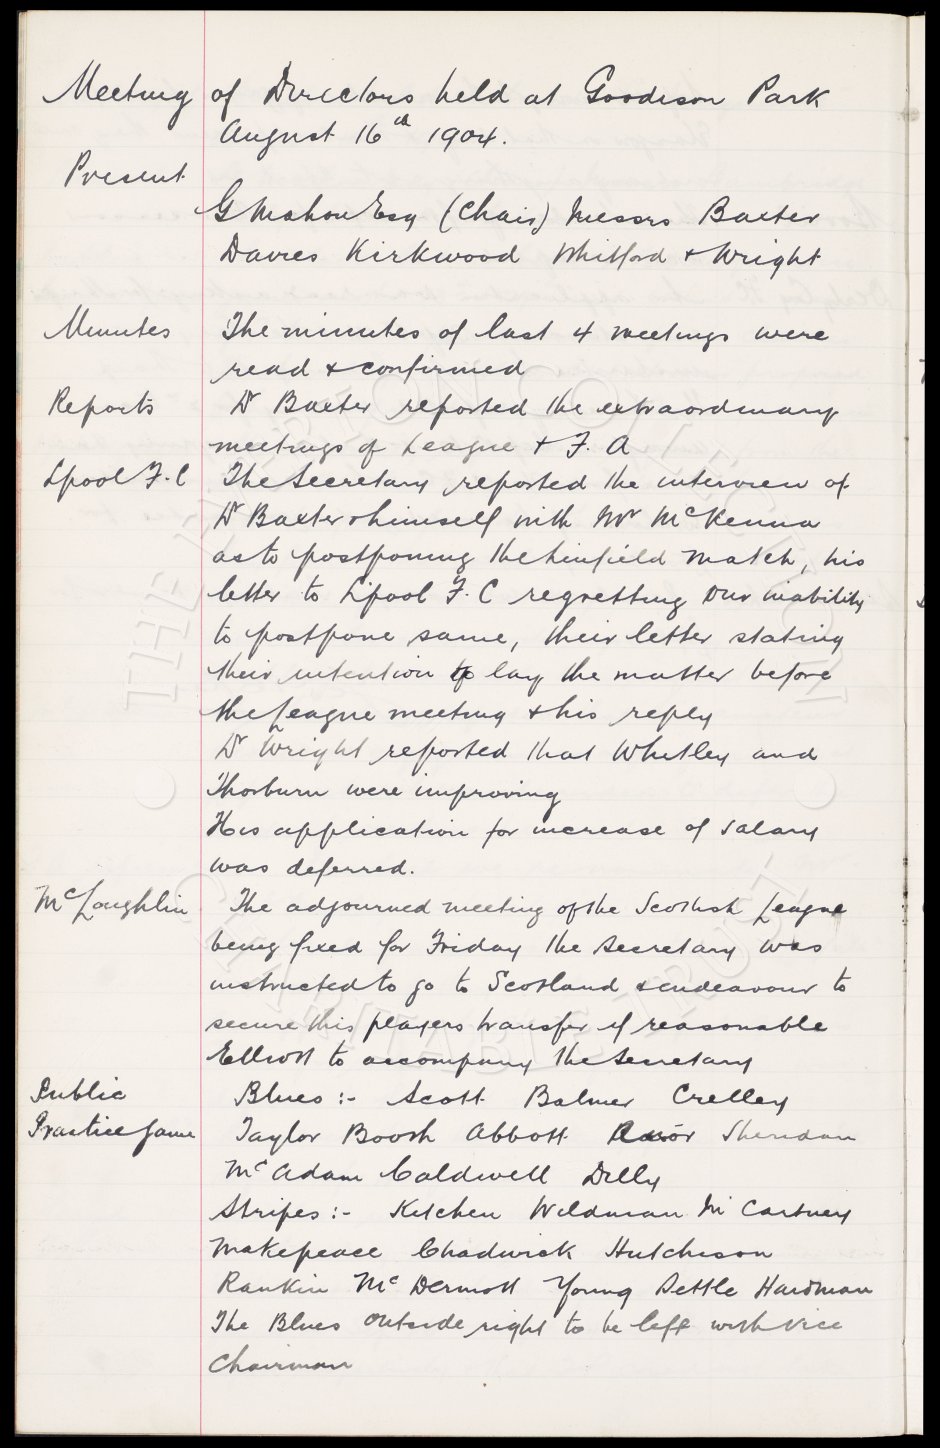 Meeting of Directors held at Goodison Park
August 16th 1904.
Present
G Mahon Esq (Chair) Messrs Baxter
Davies Kirkwood Whitford & Wright
Minutes The minutes of last 4 meetings were
read & confirmed
Reports Dr Baxter reported the extraordinary
meetings of League & F. A
Lpool F. C The Secretary reported the interview of
Dr Baxter & himself with Mr McKenna
as to postponing the Linfield match, his
letter to Lipool F. C regretting our inability
to postpone same, their letter stating
their intention to lay the matter before
the League meeting & his reply
Dr Wright reported that Whitley and
Thorburn were improving
His application for increase of salary
was deferred.
McLoughlin The adjourned meeting of the Scottish League
being fixed for Friday the Secretary was
instructed to go to Scotland & endeavour to
secure this players transfer if reasonable
Elliott to accompany the Secretary
Public Blues :- Scott Balmer Crelley
Practice Game Taylor Booth Abbott Sheridan
McAdam Caldwell Dilly
Stripes :- Kitchen Wildman McCartney
Makepeace Chadwick Hutchison
Rankin McDermott Young Settle Hardman
The Blues outside right to be left with Vice
Chairman
THE